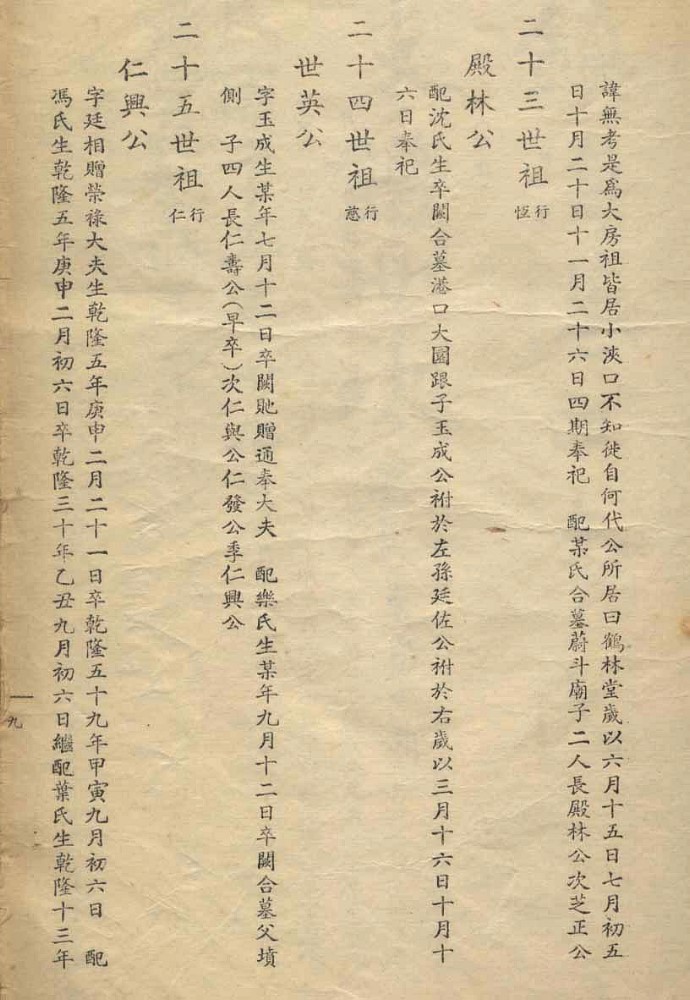 諱無考是爲大房祖皆居小浹口不知徙自何代公所居曰鶴林堂歲以六月十五日七月初五
日十月二十日十一月二十六日四期奉祀　配某氏合墓蔚斗廟子二人長殿林公次芝正公
二十三世祖 行恆
殿林公
配沈氏生卒闕合墓港口大園跟子玉成公祔於左孫廷佐公祔於右歲以三月十六日十月十
六日奉祀
二十四世祖 行慈
世英公
字玉成生某年七月十二日卒闕貤贈通奉大夫　配樂氏生某年九月十二日卒闕合墓父墳
側　子四人長仁壽公(早卒)次仁與公仁發公季仁興公
二十五世祖 行仁
仁興公
字廷相贈榮祿大夫生乾隆五年庚申二月二十一日卒乾隆五十九年甲寅九月初六日　配
馮氏生乾隆五年庚申二月初六日卒乾隆三十年乙丑九月初六日繼配葉氏生乾隆十三年
九